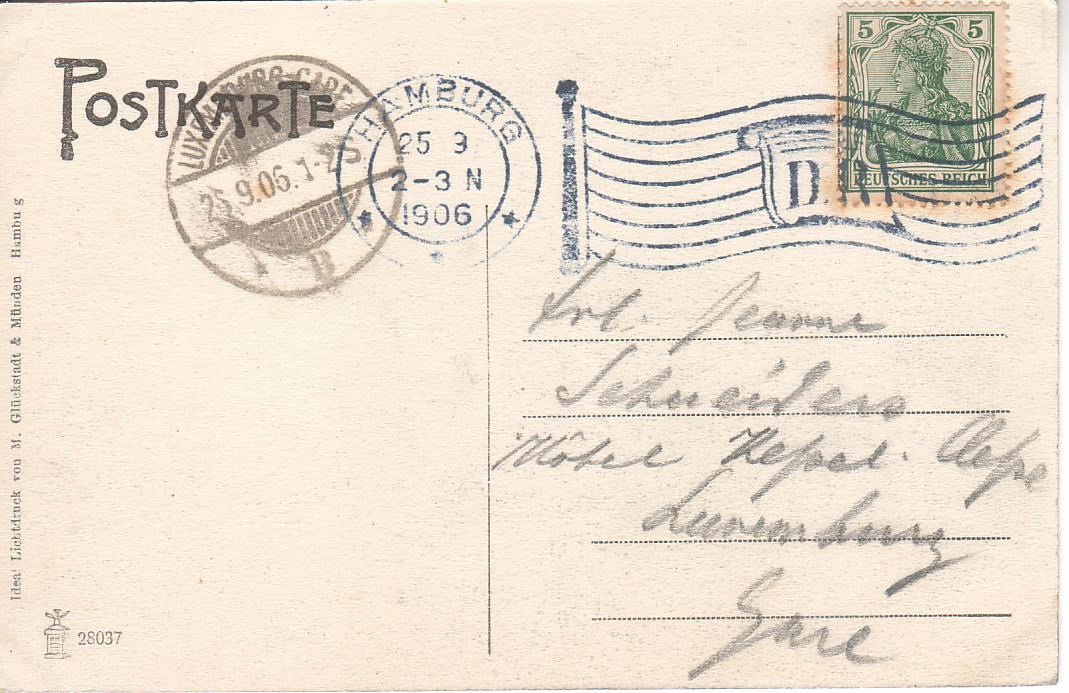 POSTKARTE
LUXEMBURG-GARE
25.9.06.1-2
B
HAMBURG
25 9
2-3 N
1906
D.R.
5 5
DEUTSCHES REICH
Frl. Jeanne
Schneiders
Hôtel
Luxemburg
Gare
Ideal Lichtdruck von M. Glückstadt & Münden Hamburg
28037